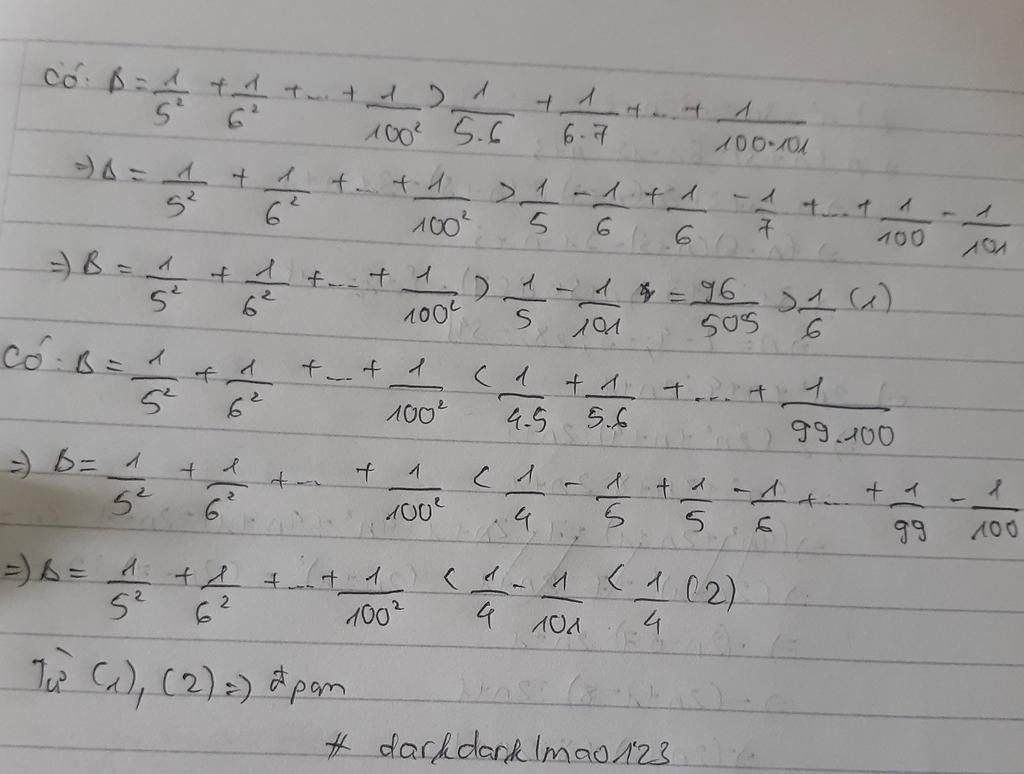 Có: B = 1/5² + 1/6² + ... + 1/100² > 1/5.6 + 1/6.7 + ... + 1/100.101
=> B = 1/5² + 1/6² + ... + 1/100² > 1/5 - 1/6 + 1/6 - 1/7 + ... + 1/100 - 1/101
=> B = 1/5² + 1/6² + ... + 1/100² > 1/5 - 1/101 = 96/505 > 1/6 (1)
Có: B = 1/5² + 1/6² + ... + 1/100² < 1/4.5 + 1/5.6 + ... + 1/99.100
=> B = 1/5² + 1/6² + ... + 1/100² < 1/4 - 1/5 + 1/5 - 1/6 + ... + 1/99 - 1/100
=> B = 1/5² + 1/6² + ... + 1/100² < 1/4 - 1/101 < 1/4 (2)
Từ (1), (2) => đpcm
# darkdarklmao123